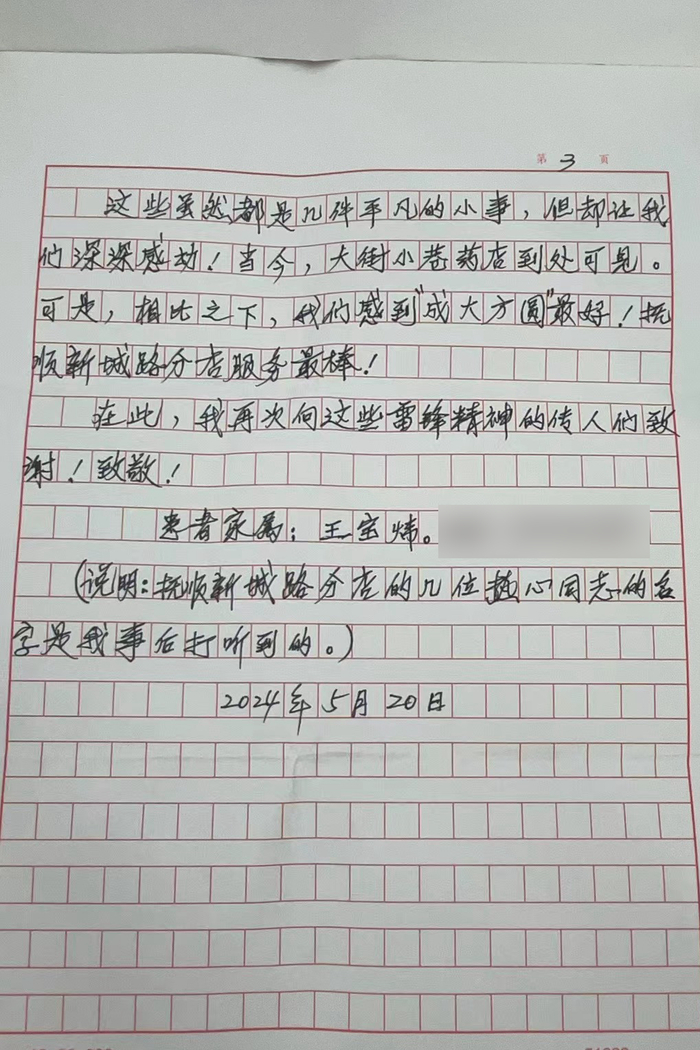 第 3 页
这些虽然都是几件平凡的小事，但却让我
们深深感动！当今，大街小巷药店到处可见。
可是，相比之下，我们感到“成大方圆”最好！抚
顺新城路分店服务最棒！
在此，我再次向这些雷锋精神的传人们致
谢！致敬！
患者家属：王宝炜。
（说明：抚顺新城路分店的几位热心同志的名
字是我事后打听到的。）
2024年5月20日